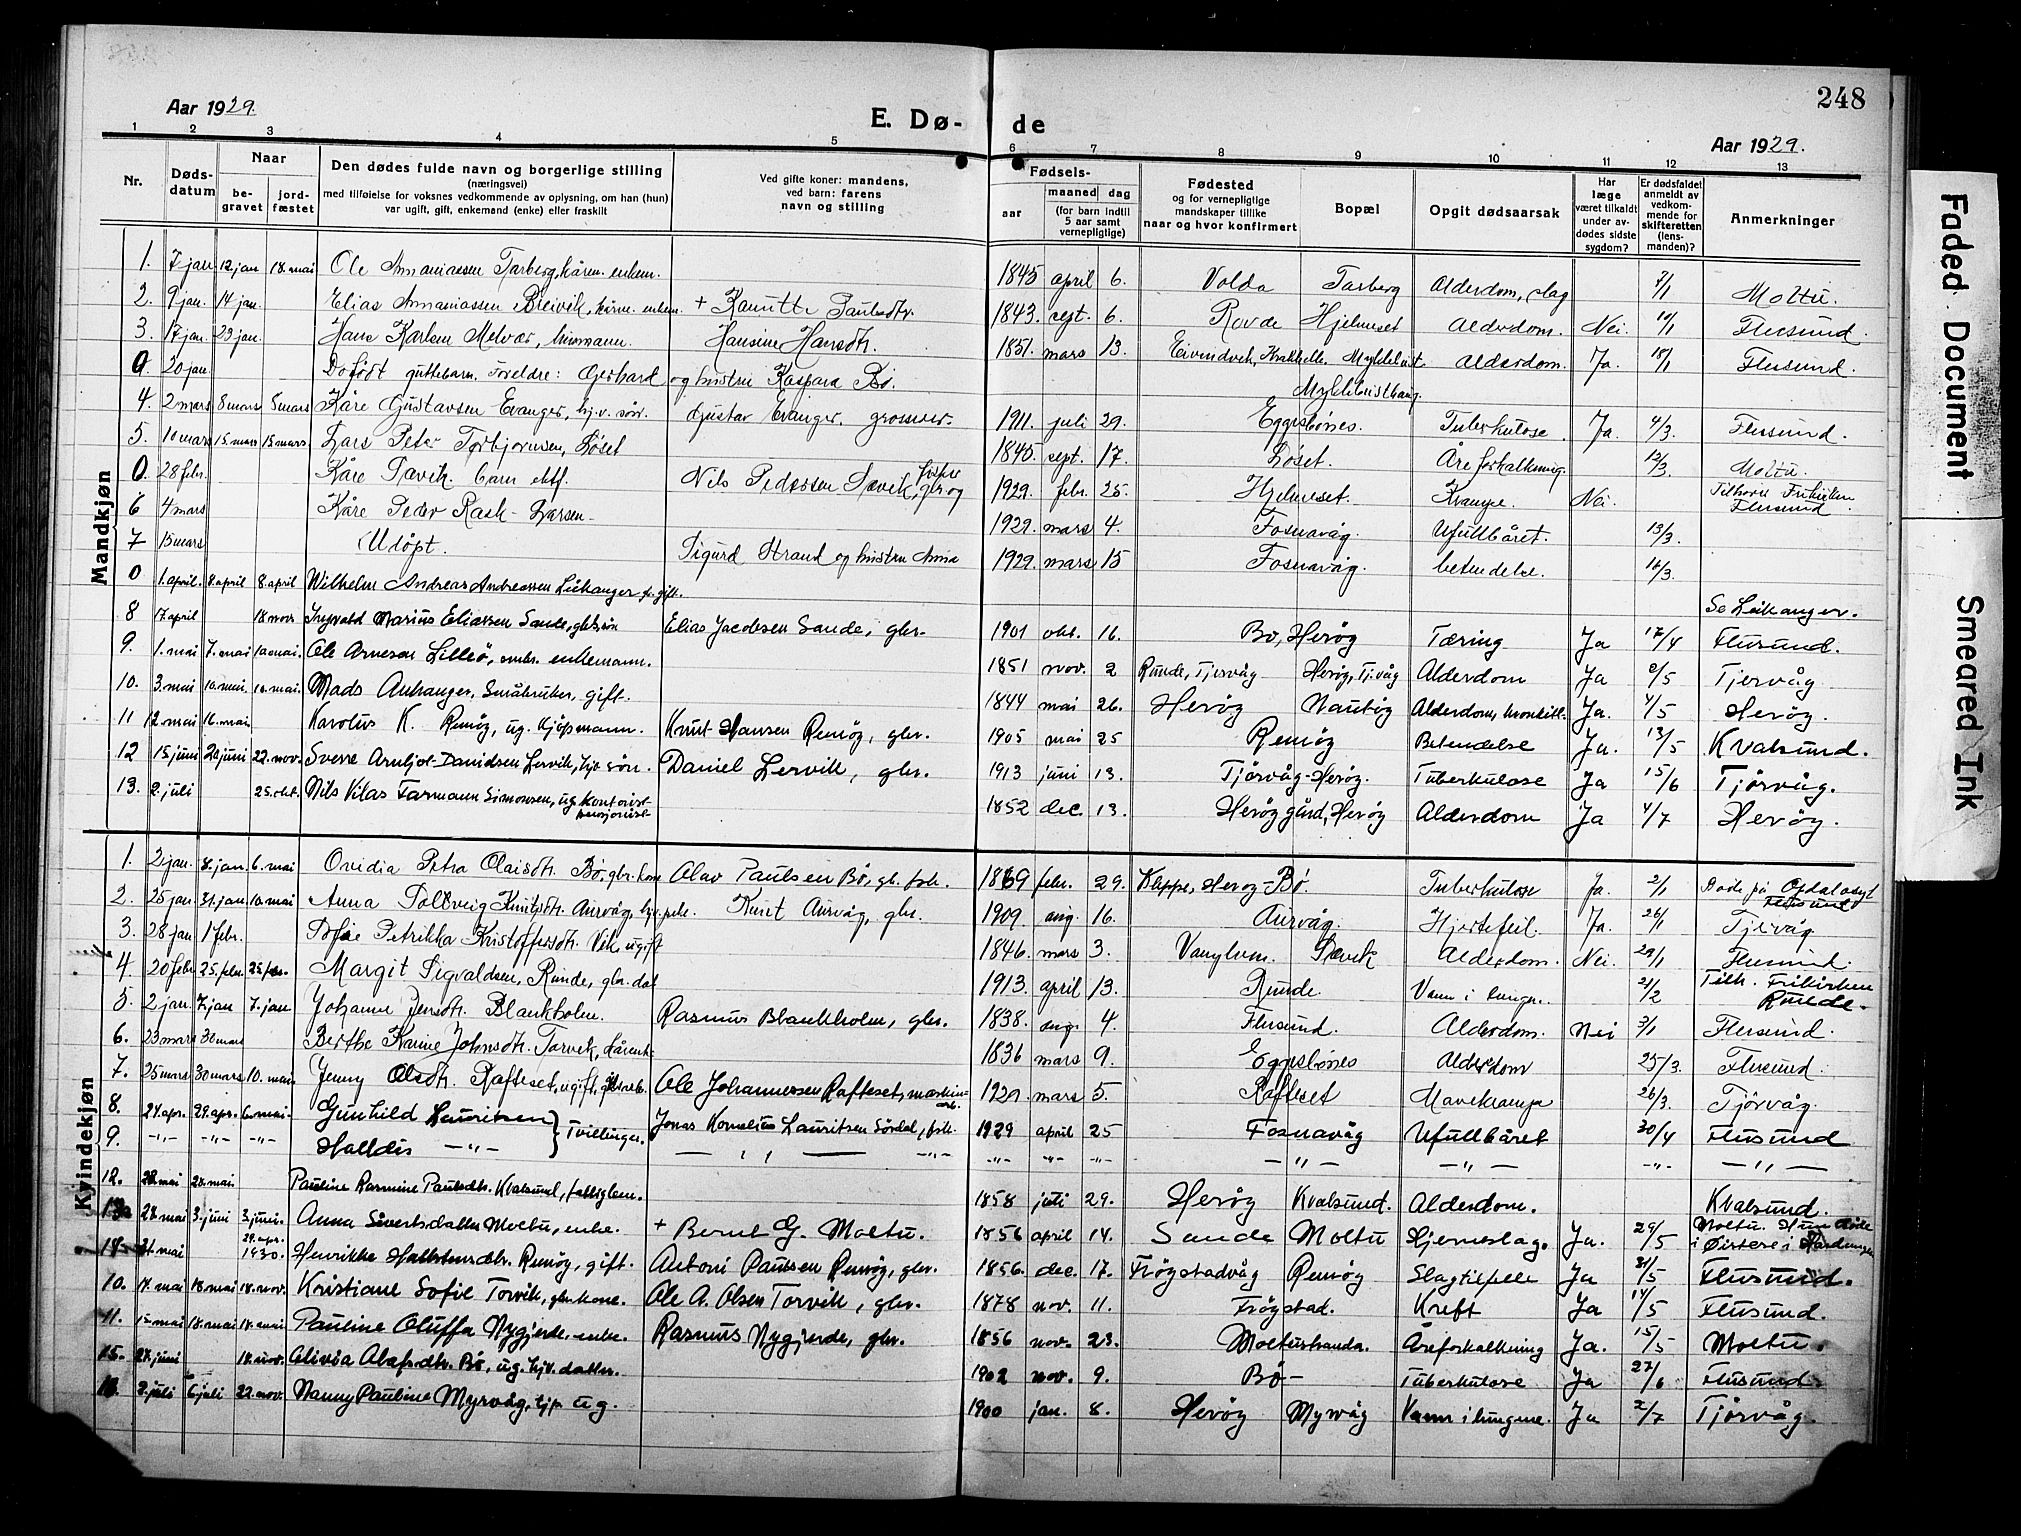 248
Aar 1929.
E. Dø- de
Aar 1929.
1 2 3 4 5 6 7 8 9 10 11 12 13
Nr.
Døds-datum
Naar
be-gravet
jord-fæstet
Den dødes fulde navn og borgerlige stilling
(næringsvei)
med tilføielse for voksnes vedkommende av oplysning, om han (hun)
var ugift, gift, enkemand (enke) eller fraskilt
Ved gifte koner: mandens,
ved barn: farens
navn og stilling
Fødsels-
aar
maaned dag
(for barn indtil
5 aar samt
vernepligtige)
Fødested
og for vernepligtige
mandskaper tillike
naar og hvor konfirmert
Bopæl
Opgit dødsaarsak
Har
læge
været tilkaldt
under av-
dødes sidste
sygdom?
Er dødsfaldet
anmeldt av
vedkom-
mende for
skifteretten
(lens-
manden)?
Anmerkninger
Mandkjøn
1. 7 jan 12 jan 18. mai Ole Ananiassen Tarberg, kårm. enkem. 1845 april 6. Volda Tarberg Alderdom, slag 7/1 Moltu.
2. 9 jan. 14 jan. Elias Ananiassen Breivik, enkem. + 1843. sept. 6. Rovde Hjelmeset Alderdom. Nei. 10/1 Flusund.
3. 17 jan. 23 jan. Hans Karlsen Melvær, Hansine Hansdtr. 1851. mars 13. Eivindvik, Myklebust Alderdom. Ja. 18/1 Flusund.
0. 20 jan. Dødfødt guttebarn. Foreldre: Gerhard og hustru Kaspara Bø. Myklebusthaug.
4. 2 mars 8 mars 8 mars Kåre Gustavsen Evanger, hj.v. søn. Gustav Evanger, grosserer. 1911. juli 29. Eggesbønes. Tuberkulose. Ja. 4/3. Flusund.
5. 10 mars 15. mars 15 mars. Lars Peter Torbjørnsen, Løset 1840. sept. 17. Løset. Åreforkalkning. 12/3. Moltu.
0. 28 febr. Kåre Sævik. barn ektf. Nils Pedersen Sævik, fisker gbr og 1929. febr. 25. Hjelmeset. Krampe. Nei. Tilhører Frikirken Flusund.
6 4 mars Kåre Peder Rask-Larsen. 1929. mars 4. Fosnavåg. Ufullbåret. 13/3.
7 15 mars Udøpt. Sigurd Strand og hustru Anna 1929. mars 15 Fosnavåg. betendelse. 16/3.
0 1. april. 8. april 8. april Wilhelm Andreas Andreassen Leikanger f. gift. Se Leikanger.
8 17. april 18 nov. Ingvald Marius Eliassen Sande, gbr.søn Elias Jacobsen Sande, gbr. 1901 okt. 16. Bo, Herøy Tæring Ja 17/4 Flusund.
9. 1. mai 7. mai 10. mai. Ole Arnesen Lilleø, enkemann. 1851 nov. 2 Runde, Tjervåg Herøy, Tj.våg Alderdom Ja 2/5 Tjervåg
10. 3. mai 10. mai. 10. mai. Mads Aurhanger, Småbruker, gift. 1844 mai 26. Herøy Nautøy Alderdom, Ja. 4/5 Herøy.
11 12. mai 16. mai. Karolus K. Remøy, ug. kjøpmann. Knut Hansen Remøy, gbr. 1905 mai 25 Remøy Betendelse Ja. 13/5 Kvalsund.
12 15 juni 20 juni 22. nov. Sverre Arnljot Danielsen Lervik, hjv søn. Daniel Lervik, gbr. 1913 juni 13. Tjørvåg-Herøy. Tuberkulose Ja 15/6 Tjørvåg.
13. 2. juli 25. okt. Nils Vilas Farmann Simonsen, ug. kontorist-pensjonist 1852 dec. 13. Herøy gård, Herøy Alderdom Ja 4/7 Herøy.
Kvindekjøn
1. 2 jan. 8. jan. 6. mai Ovidia Petra Olaisdtr. Bø, gbr. kone Olav Paulsen Bø, gb. fsk. 1869 febr. 29. Kleppe, Herøy Bø. Tuberkulose Ja. 2/1 Døde på Opdalasyl Flusund
2. 25 jan. 31. jan. 10. mai Anna Solveig Knutsdtr. Aurvåg, hjv. pike. Knut Aurvåg, gbr. 1909. aug. 16. Aurvåg. Hjertefeil. Ja. 26/1 Tjervåg
3. 28 jan. 1 febr. Petrikka Kristoffersdtr. Vik ugift 1846. mars 3. Vanylven. Sævik Alderdom. Nei. 29/1 Flusund.
4. 20 febr. 25. febr. 25. febr. Margit Sigvaldsen, Runde, gbr. dat 1913. april 13. Runde. Vann i lungen. 21/2 Tilh. Frikirken Runde.
5. 2 jan. 7. jan 7. jan Johanne Jensdtr. Blankholm. Rasmus Blankholm, gbr. 1838. aug. 4. Flusund. Alderdom. Nei 3/1 Flusund.
6. 23 mars 30 mars Berthe Karine Johnsdtr. Torvik, kårenk. 1836 mars 9. Eggesbønes Alderdom 25/3. Flusund.
7. 25 mars 30 mars 10. mai Jenny Olsdtr. Rafteset, ugift, Ole Johannessen Rafteset, maskin- 1920 mars 5. Rafteset Mavekrampe 26/3. Tjörvåg
8. 27. apr. 29. apr. 6. mai. Gunhild Lauritsen } Tvillinger. Jonas Kornelius Lauritsen Sørdal, fsk. 1929 april 25 Fosnavåg Ufullbåret 30/4 Flusund
9. -"- -"- -"- Halldis -"- — " — -"- -"- -"- -"- — " — — " — -"- — " —
12. 22. mai 28. mai. Pauline Rasmine Paulsdtr. Kvalsund, fattiglem. 1858 juli 29. Herøy Kvalsund. Alderdom. Kvalsund.
13. 28. mai 3. juni 3. juni. Anna Sivertsdatter Moltu, enke. + Bernt G. Moltu. 1856 april 14. Sande Moltu Hjerneslag. Ja. 29/5 Moltu. Hun døde i Øistese i Hardanger
14. 31. mai 29. apr. 1930. Henrikke Remøy, gift. Antoni Paulsen Remøy, gbr. 1856. dec. 17. Frøystadvåg Remøy Slagtilfelle Ja 31/5 Flusund.
10. 14. mai 18. mai 18. nov. Kristiane Sofie Torvik, gbr.kone. Ole A. Olsen Torvik, gbr. 1878 nov. 11. Frøystad. Kreft Ja 14/5 Flusund.
11. 15. mai 18. mai 18. mai Pauline Oluffa Nygjerde, enke. Rasmus Nygjerde, gbr. 1856 nov. 23. Moltustranda. Åreforkalkning Ja. 15/5 Moltu.
15. 27. juni 18. nov. Alivia Bø, ug. hjv. datter. 1902 nov. 9. Bø- Tuberkulose Ja 27/6 Flusund
16. 2. juli 6 juli 22. nov. Nanny Pauline Myrvåg, tjp. ug. 1900 jan. 8. Herøy Myrvåg Vann i lungene. Ja 2/7 Tjørvåg.
Faded Document
Smeared Ink